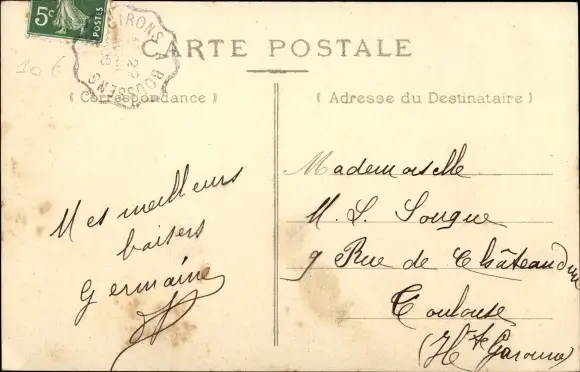 5c
POSTES
GIRONS A ROUSSENG
10 €
CARTE POSTALE
( Correspondance )
( Adresse du Destinataire )
Mes meilleurs
baisers
Germaine
Mademoiselle
M. L. Sougue
9 Rue de Châteaudun
Toulouse
(Hte Garonne)